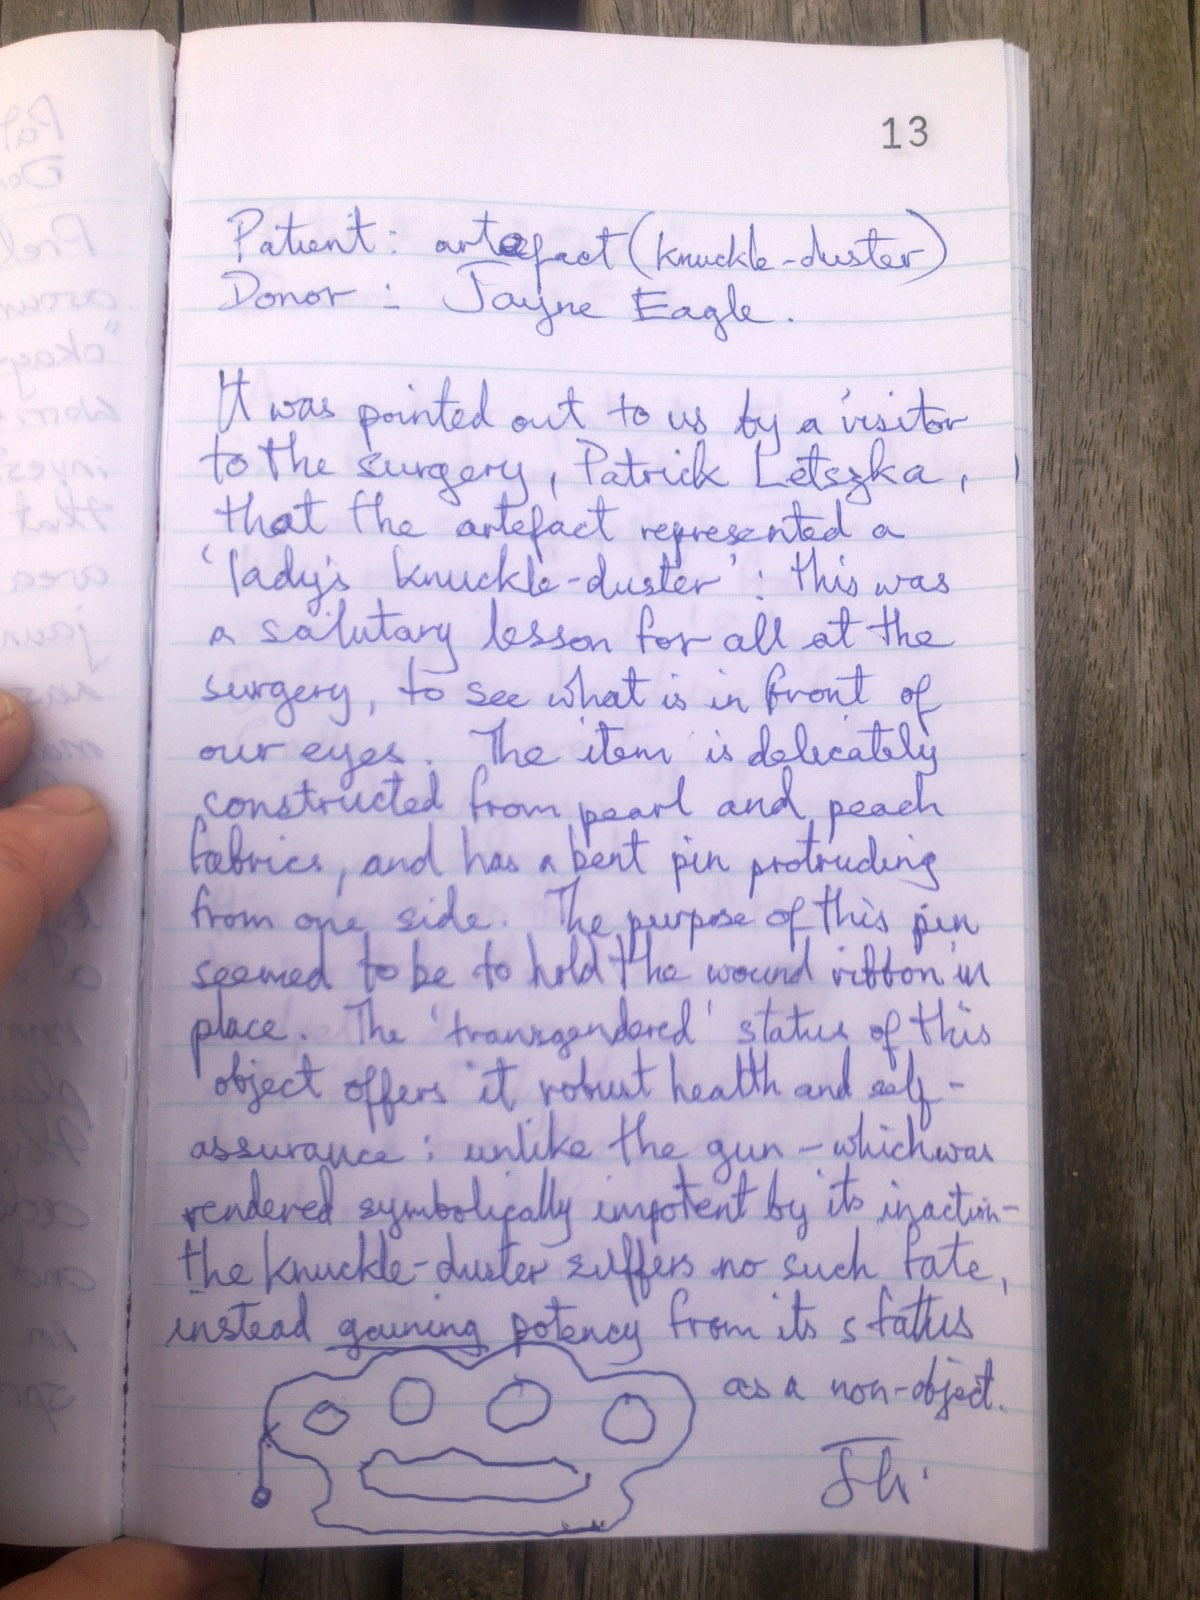 13
Patient: artefact (knuckle-duster)
Donor: Jayne Eagle.
It was pointed out to us by a visitor
to the surgery, Patrick Letszka,
that the artefact represented a
'lady's knuckle-duster': this was
a salutary lesson for all at the
surgery, to see what is in front of
our eyes. The item is delicately
constructed from pearl and peach
fabrics, and has a bent pin protruding
from one side. The purpose of this pin
seemed to be to hold the wound ribbon in
place. The 'transgendered' status of this
object offers it robust health and self-
assurance: unlike the gun - which was
rendered symbolically impotent by its inaction-
the knuckle-duster suffers no such fate,
instead gaining potency from its status
as a non-object.